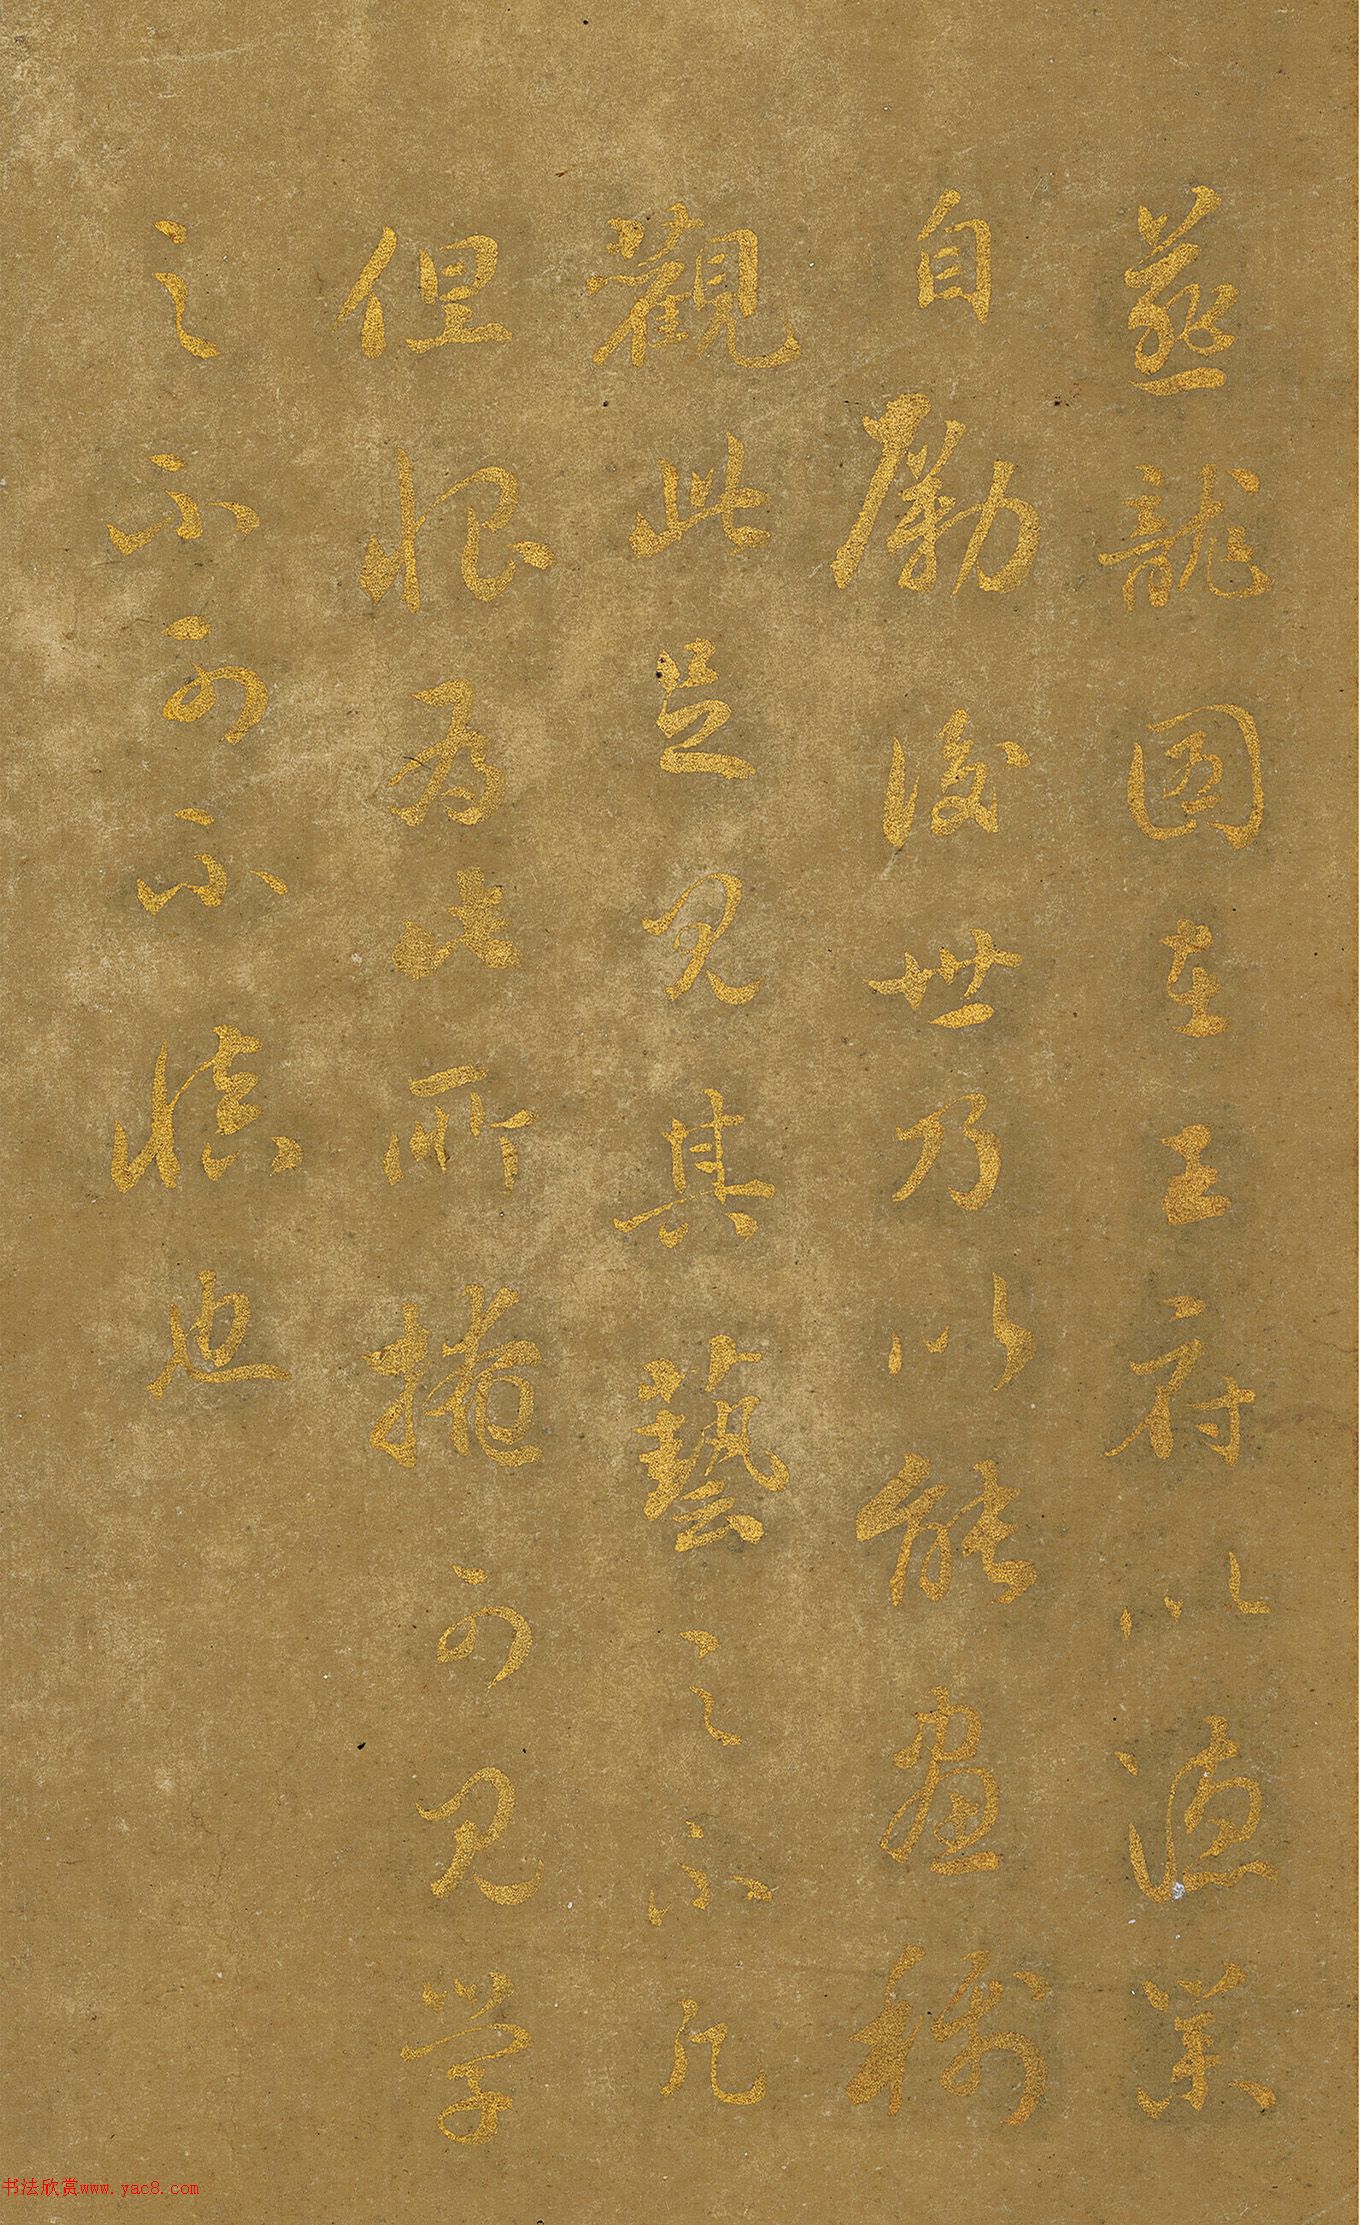 燕龍圖在王府以德業
自勵後世乃以能畫稱
觀此足見其藝之不凡
但恨為此所掩可見学
之不可不慎也
书法欣赏www.yac8.com